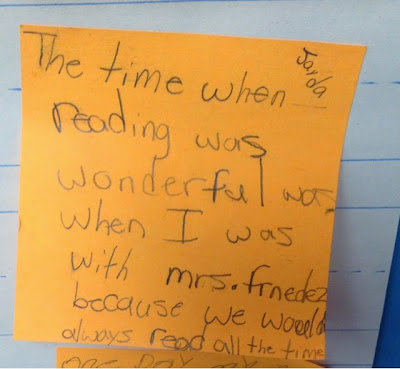 Jayda
The time when
reading was
wonderful was
when I was
with mrs.frnedez
because we woould
always read all the time
one day my